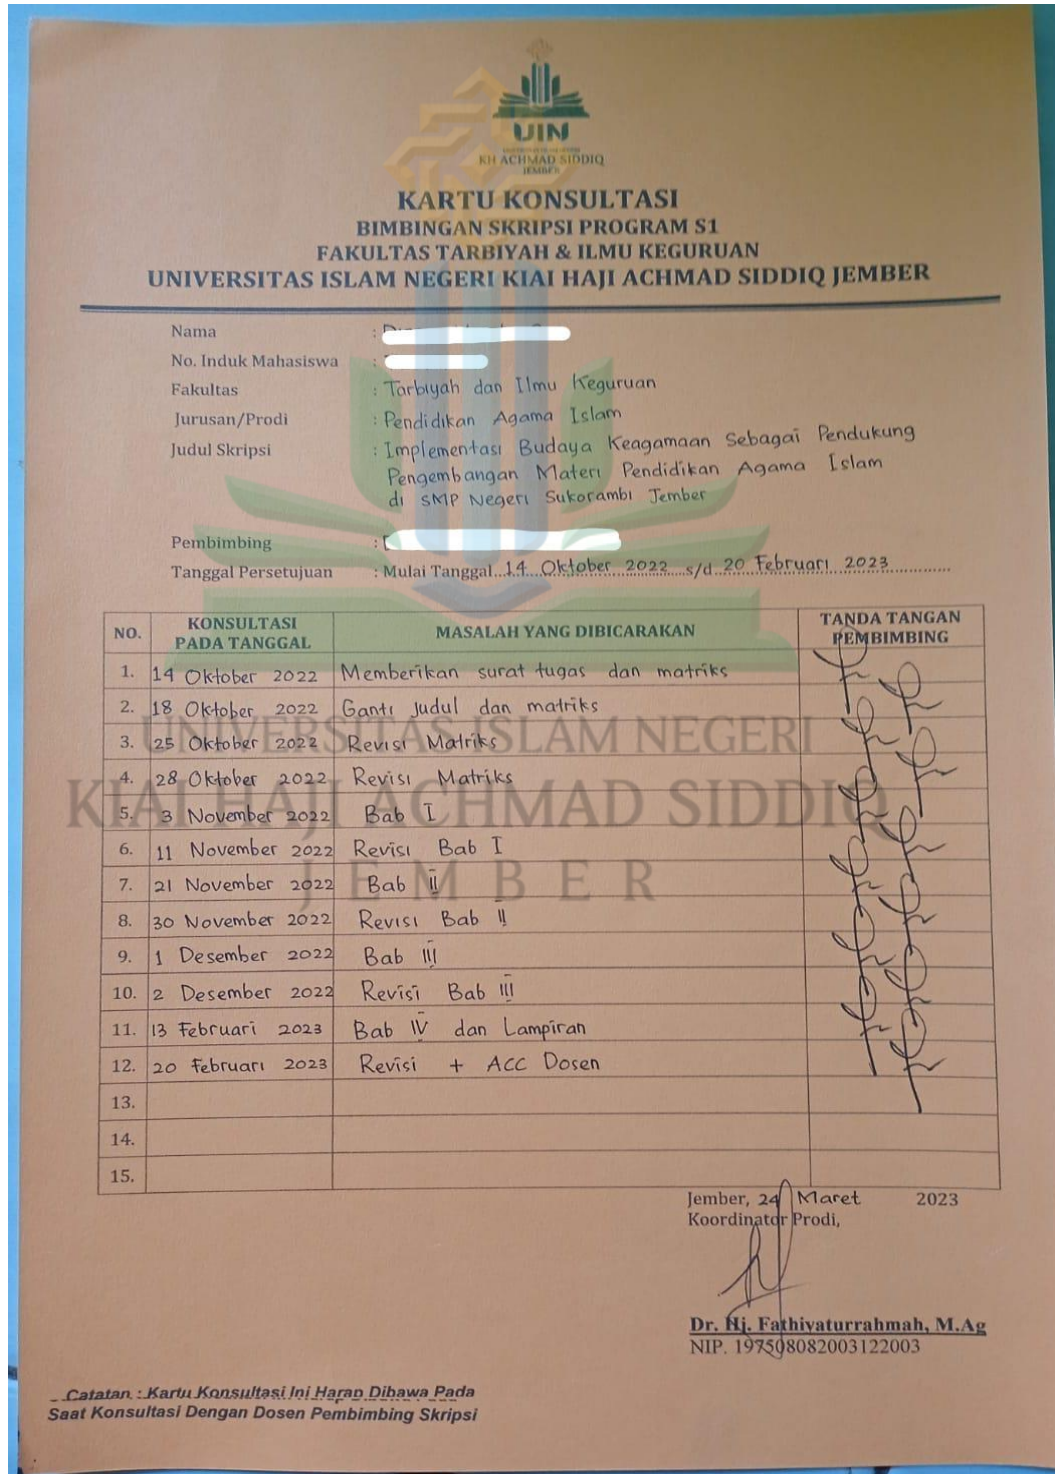 UIN
KH ACHMAD SIDDIQ
JEMBER
KARTU KONSULTASI
BIMBINGAN SKRIPSI PROGRAM S1
FAKULTAS TARBIYAH & ILMU KEGURUAN
UNIVERSITAS ISLAM NEGERI KIAI HAJI ACHMAD SIDDIQ JEMBER
Nama :
No. Induk Mahasiswa :
Fakultas : Tarbiyah dan Ilmu Keguruan
Jurusan/Prodi : Pendidikan Agama Islam
Judul Skripsi : Implementasi Budaya Keagamaan Sebagai Pendukung
Pengembangan Materi Pendidikan Agama Islam
di SMP Negeri Sukorambi Jember
Pembimbing :
Tanggal Persetujuan : Mulai Tanggal 14 Oktober 2022 s/d 20 Februari 2023
NO. KONSULTASI PADA TANGGAL MASALAH YANG DIBICARAKAN TANDA TANGAN PEMBIMBING
1. 14 Oktober 2022 Memberikan surat tugas dan matriks
2. 18 Oktober 2022 Ganti judul dan matriks
3. 25 Oktober 2022 Revisi Matriks
4. 28 Oktober 2022 Revisi Matriks
5. 3 November 2022 Bab I
6. 11 November 2022 Revisi Bab I
7. 21 November 2022 Bab II
8. 30 November 2022 Revisi Bab II
9. 1 Desember 2022 Bab III
10. 2 Desember 2022 Revisi Bab III
11. 13 Februari 2023 Bab IV dan Lampiran
12. 20 Februari 2023 Revisi + ACC Dosen
13.
14.
15.
UNIVERSITAS ISLAM NEGERI
KIAI HAJI ACHMAD SIDDIQ
JEMBER
Jember, 24 Maret 2023
Koordinator Prodi,
Dr. Hj. Fathiyaturrahmah, M.Ag
NIP. 197508082003122003
Catatan : Kartu Konsultasi Ini Harap Dibawa Pada
Saat Konsultasi Dengan Dosen Pembimbing Skripsi